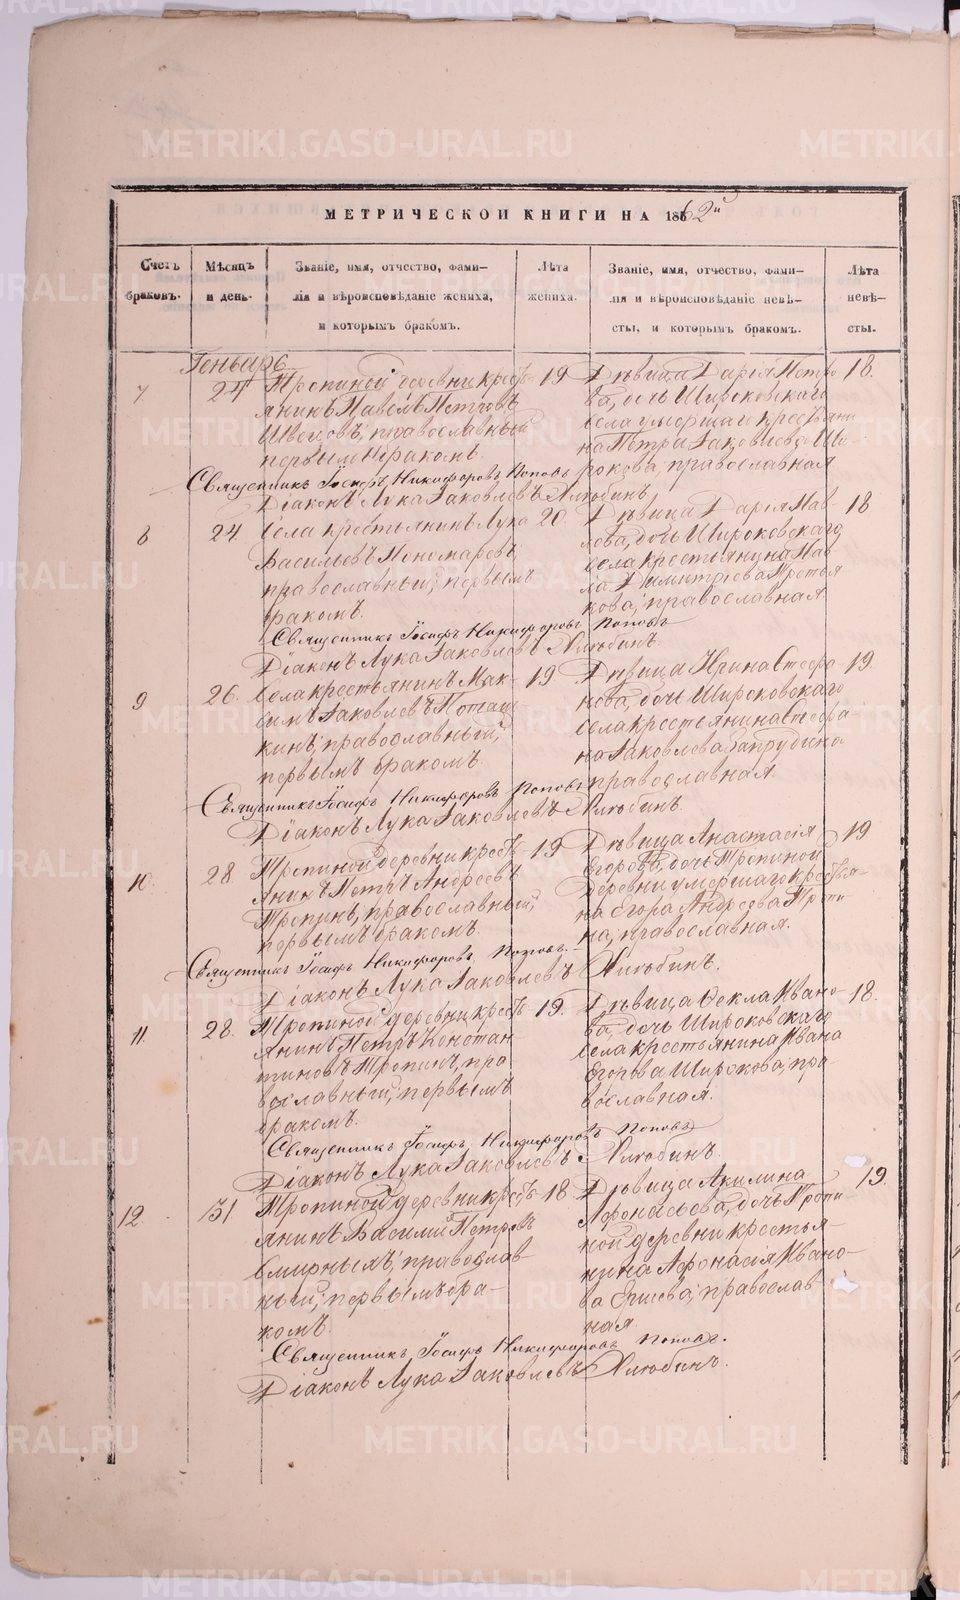 METRIKI.GASO-URAL.RU
МЕТРИЧЕСКОЙ КНИГИ НА 1862й
Счетъ браковъ.
Мѣсяцъ и день.
Званіе, имя, отчество, фами-
лія и вѣроисповѣданіе жениха,
и которымъ бракомъ.
Лѣта жениха.
Званіе, имя, отчество, фами-
лія и вѣроисповѣданіе невѣ-
сты, и которымъ бракомъ.
Лѣта невѣ-
сты.
Геньварь
7
24
Тропиной деревни кресть-
янинъ Павелъ Петровъ
православный
первымъ бракомъ.
19
Дѣвица Дарія Петро
ва, дочь Широковскаго
села умершаго крестьяни
на Петра Іаковлева Ши-
рокова, православная
18.
Священникъ Іосифъ Никифоровъ Поповъ
Діаконъ Лука Іаковлевъ Хлюбинъ.
8
24
Села крестьянинъ Лука
Васильевъ Пономаревъ,
православный, первымъ
бракомъ.
20.
Дѣвица Дарія Пав
лова, дочь Широковскаго
села крестьянина Пав
ла Димитріева Третья
кова, православная
18
Священникъ Іосифъ Никифоровъ Поповъ
Діаконъ Лука Іаковлевъ Хлюбинъ.
9
26.
Села крестьянинъ Мак-
симъ Іаковлевъ Поташ
кинъ, православный,
первымъ бракомъ.
19
Дѣвица Ирина Стефа-
нова, дочь Широковскаго
села крестьянина Стефа-
на Іаковлева Запрудина
православная.
19.
Священникъ Іосифъ Никифоровъ Поповъ
Діаконъ Лука Іаковлевъ Хлюбинъ.
10.
28.
Тропиной деревни кресть-
янинъ Петръ Андреевъ
Тропинъ, православный,
первымъ бракомъ.
19
Дѣвица Анастасія
Егорова, дочь Тропиной
деревни умершаго крестьяни-
на Егора Андреева Тропи
на, православная.
19
Священникъ Іосифъ Никифоровъ Поповъ.
Діаконъ Лука Іаковлевъ Хлюбинъ.
11
28.
Тропиной деревни кресть-
янинъ Петръ Констан-
тиновъ Тропинъ, пра
вославный, первымъ
бракомъ.
19.
Дѣвица Ѳекла Ивано-
ва, дочь Широковскаго
села крестьянина Ивана
Егорова Широкова, пра-
вославная.
18.
Священникъ Іосифъ Никифоровъ Поповъ
Діаконъ Лука Іаковлевъ Хлюбинъ.
12.
31.
Тропиной деревни кресть-
янинъ Василій Петровъ
Смирныхъ, православ
ный, первымъ бра-
комъ.
18
Дѣвица Акилина
Афонасьева, дочь Тропи
ной деревни крестья-
нина Афонасія Ивано-
ва православ
ная
19.
Священникъ Іосифъ Никифоровъ Поповъ.
Діаконъ Лука Іаковлевъ Хлюбинъ.